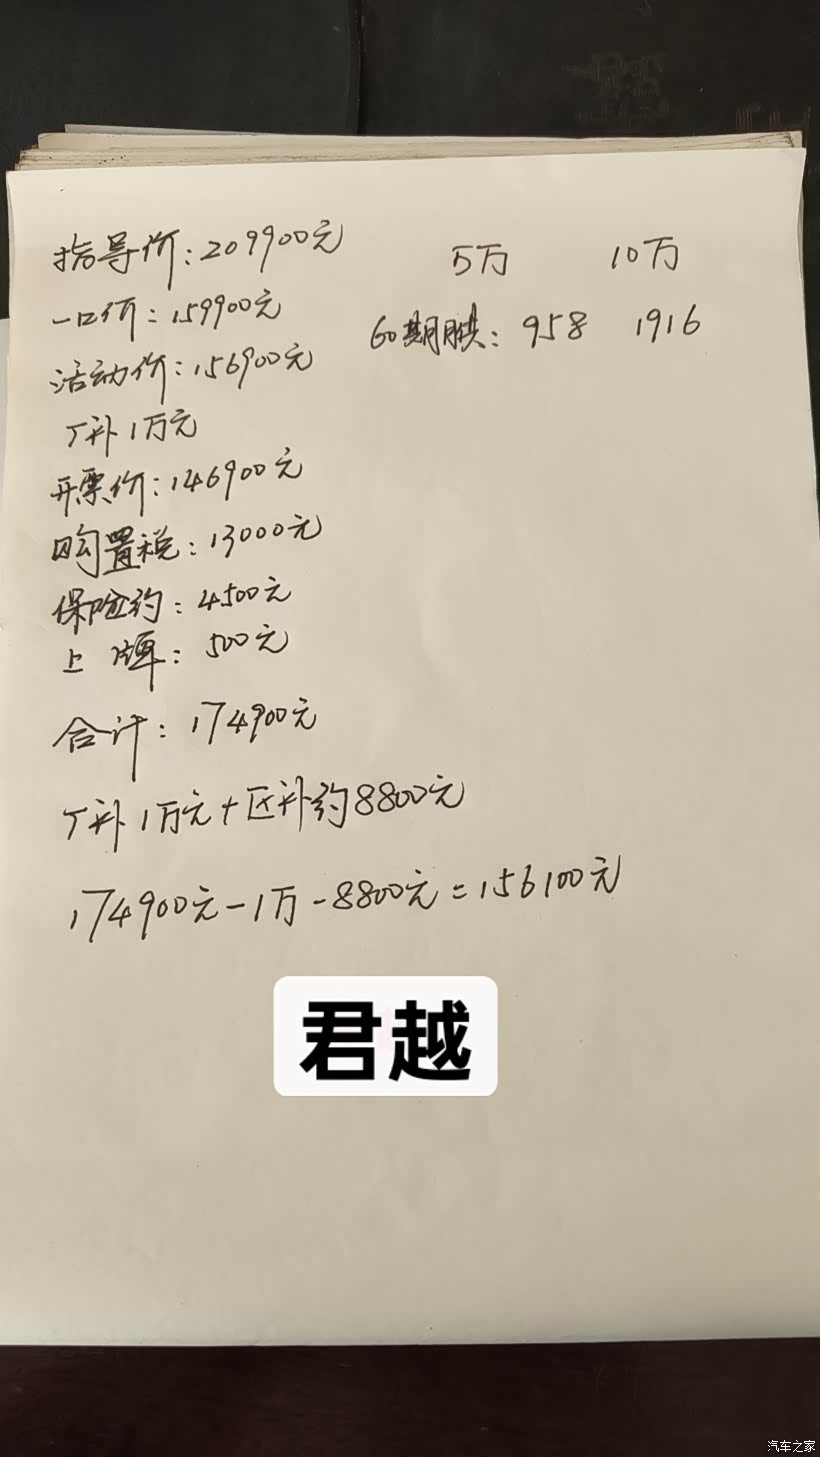 指导价：209900元
5万 10万
一口价：159900元
60期月供：958 1916
活动价：156900元
厂补1万元
开票价：146900元
购置税：13000元
保险约：4500元
上牌：500元
合计：174900元
厂补1万元+区补约8800元
174900元-1万-8800元=156100元
君越
汽车之家